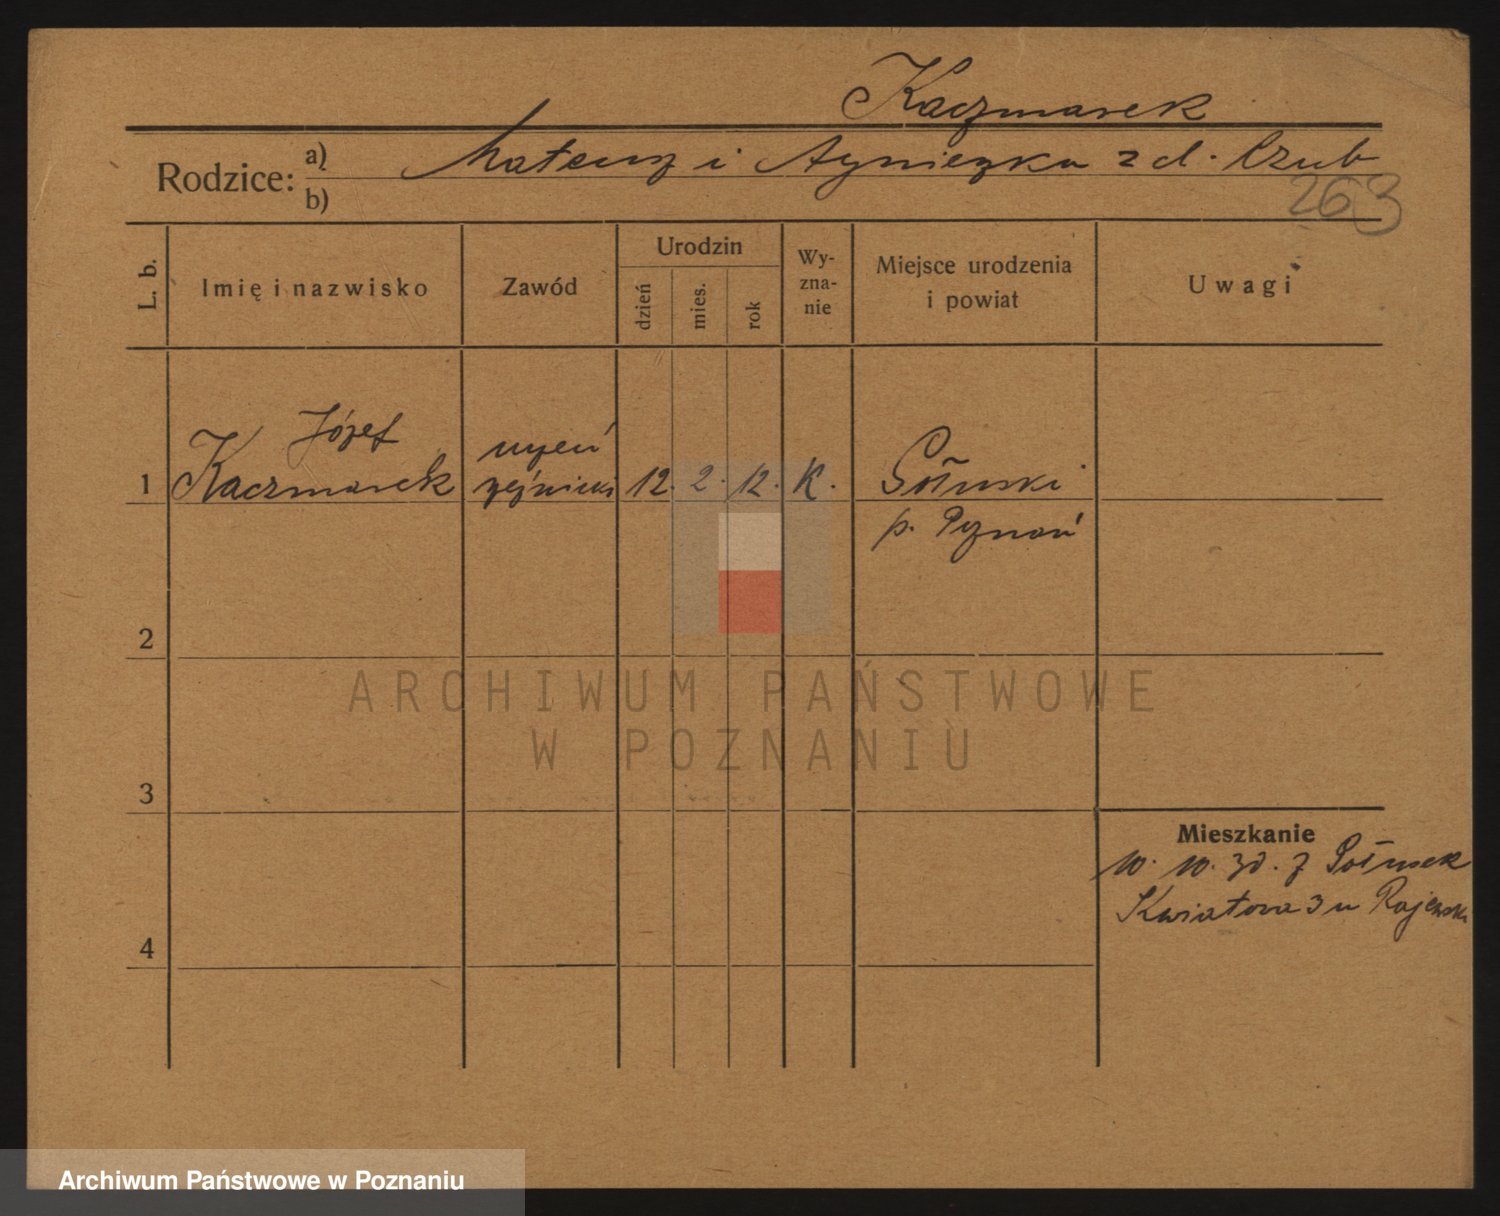 Kaczmarek
Rodzice: a) Mateusz i Agnieszka z d. Czub
b)
263
L. b.
Imię i nazwisko
Zawód
Urodzin
dzień
mies.
rok
Wy-
zna-
nie
Miejsce urodzenia
i powiat
Uwagi
Józef
1 Kaczmarek
uczeń
rzeźnicki
12. 2. 12. K.
p. Poznań
2
3
4
Mieszkanie
10. 10. 30. z
Kwiatowa 3 u Rajewski
ARCHIWUM PAŃSTWOWE
W POZNANIU
Archiwum Państwowe w Poznaniu